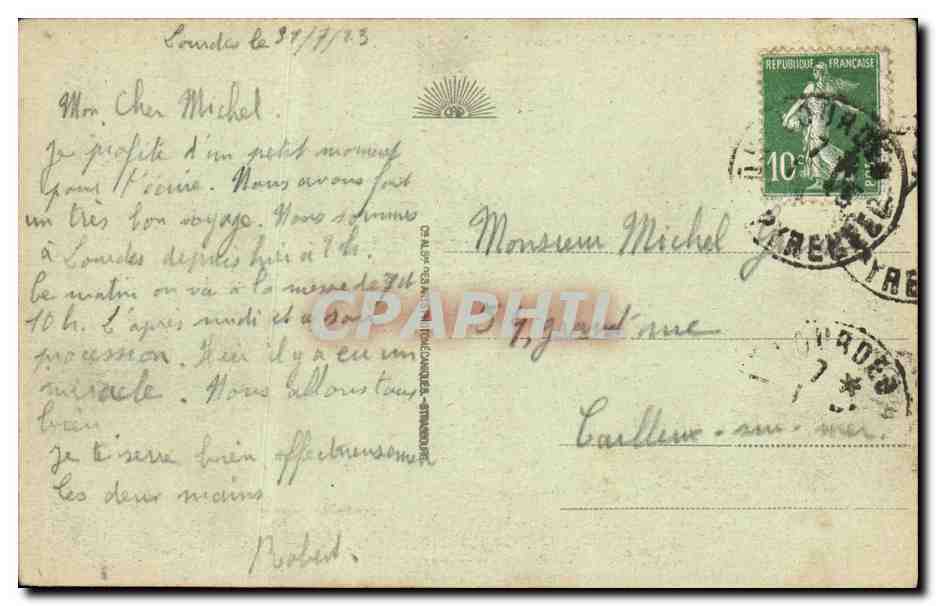 Lourdes le 31/7/23
Mon Cher Michel.
Je profite d'un petit moment
pour t'écrire. Nous avons fait
un très bon voyage. Nous sommes
à Lourdes depuis hier à 1 h.
Le matin on va à la messe de 7 et
10 h. L'après midi et a soir
procession. Hier il y a eu un
miracle. Nous allons tous
bien
Je te serre bien affectueusement
les deux mains
Robert.
CAP
CIE ALSNE DES ARTS PHOTOMÉCANIQUES.-STRASBOURG
RÉPUBLIQUE FRANÇAISE
10c
POSTES
LOURDES
PYRENEES
Monsieur Michel
59, grand'rue
Cailleux-sur-mer.
LOURDES
CPAPHIL